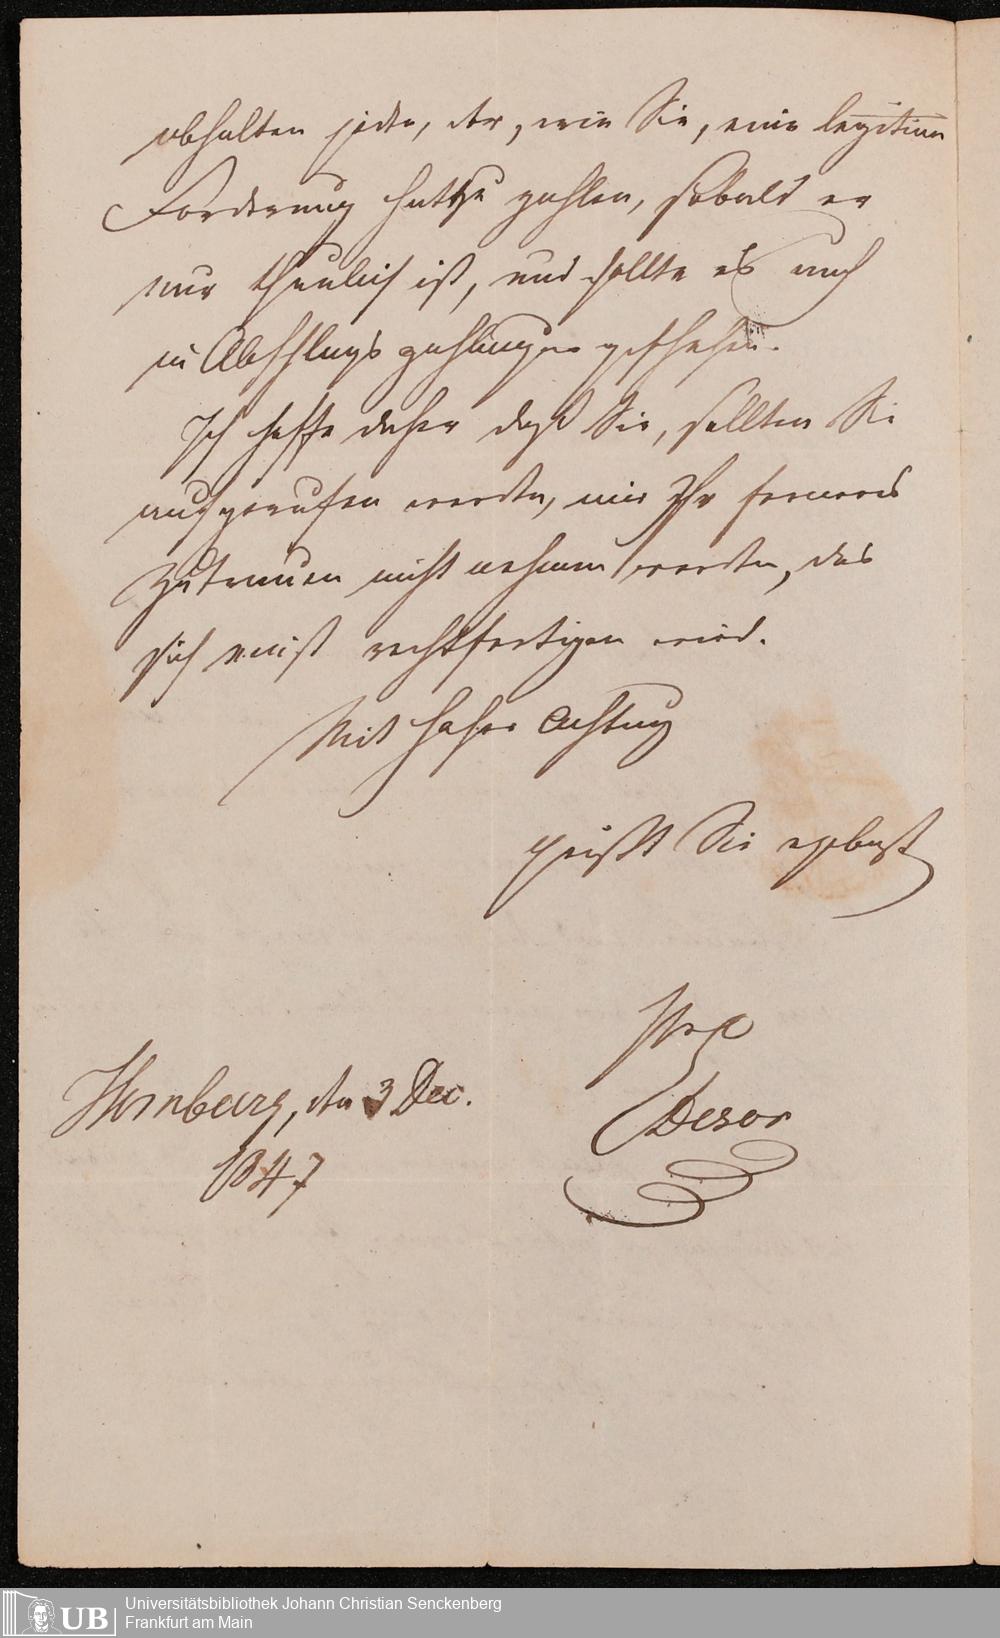 abhalten jeden, der, wie Sie, eine legitime
Forderung hat zu zahlen, sobald er
nur thunlich ist, und sollte es auch
in Abschlags zahlungen geschehen.
Ich hoffe daher daß Sie, sollten Sie
aufgerufen werden, mir Ihr ferneres
Zutrauen nicht nehmen werden, das
sich gewiß rechtfertigen wird.
Mit hoher Achtung
grüßt Sie ergebenst
Ihr
Desor
Homburg, den 3 Dec.
1847
UB
Universitätsbibliothek Johann Christian Senckenberg
Frankfurt am Main